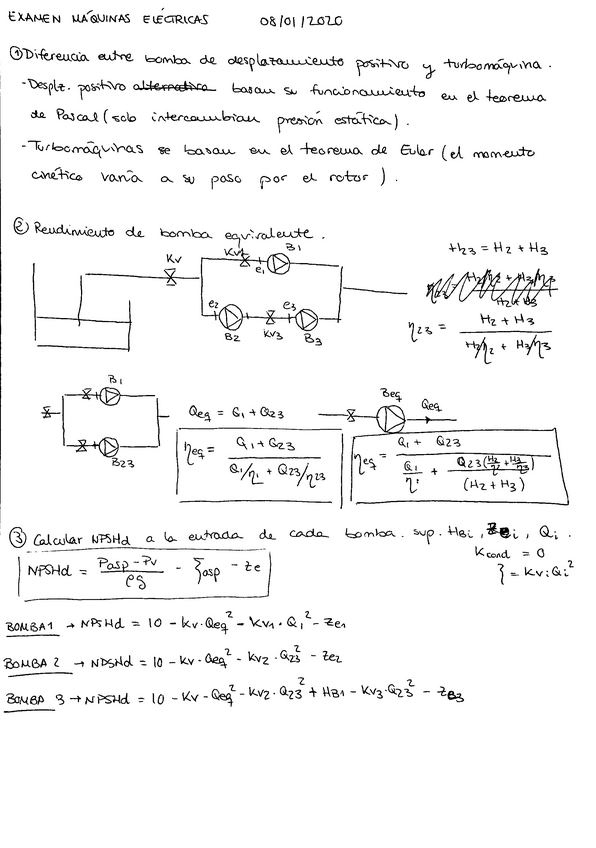 EXAMEN MÁQUINAS ELÉCTRICAS 08/01/2020
① Diferencia entre bomba de desplazamiento positivo y turbomáquina.
- Desplz. positivo alternativa basan su funcionamiento en el teorema
de Pascal (solo intercambian presión estática).
- Turbomáquinas se basan en el teorema de Euler (el momento
cinético varía a su paso por el rotor).
② Rendimiento de bomba equivalente.
Kv Kv1 e1 B1
e2 B2 Kv3 e3 B3
H23 = H2 + H3
η23 = (H2 + H3) / (H2/η2 + H3/η3)
B1
B23
Qeq = Q1 + Q23
ηeq = (Q1 + Q23) / (Q1/η1 + Q23/η23)
Beq Qeq
ηeq = (Q1 + Q23) / (Q1/ηi + Q23(H2/ηi + H3/η3)/(H2 + H3))
③ Calcular NPSHd a la entrada de cada bomba. sup. HBi, zei, Qi.
Kcond = 0
ξ = Kvi·Qi²
NPSHd = (Pasp - Pv)/ρg - ξasp - ze
BOMBA 1 → NPSHd = 10 - Kv·Qeq² - Kv1·Q1² - ze1
BOMBA 2 → NPSHd = 10 - Kv·Qeq² - Kv2·Q23² - ze2
BOMBA 3 → NPSHd = 10 - Kv-Qeq² - Kv2·Q23² + HB1 - Kv3·Q23² - zB3